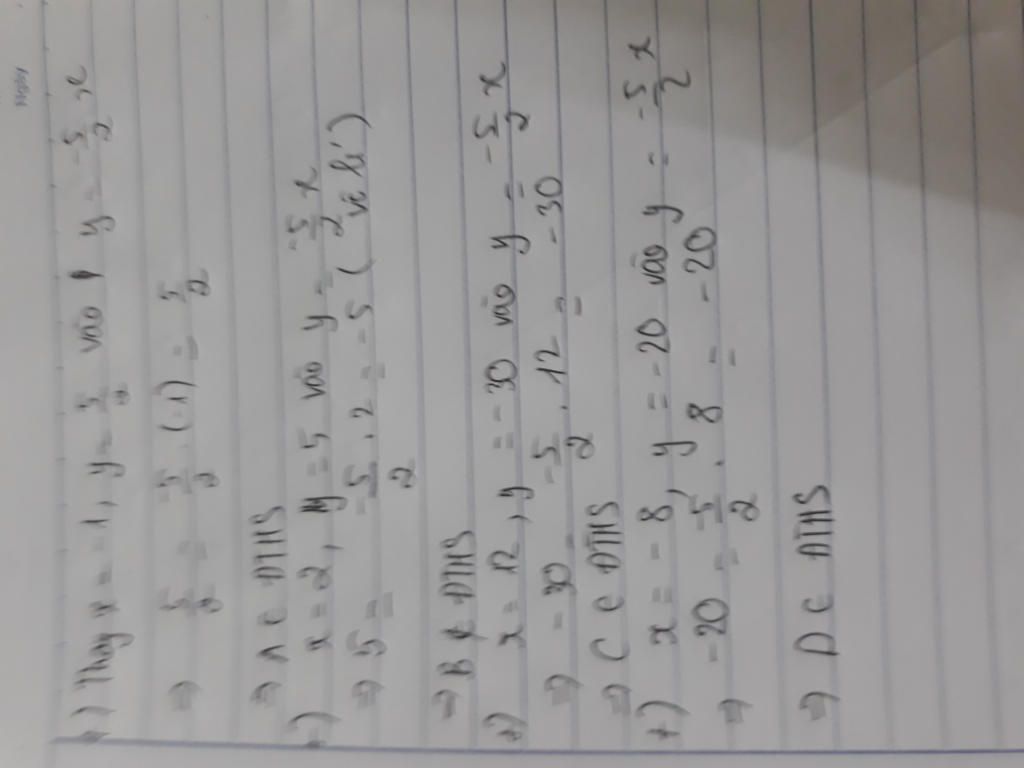 +) Thay x = -1, y = 5/2 vào y = -5/2 x
⇒ 5/2 = -5/2 . (-1) = 5/2
⇒ A ∈ ĐTHS
+) x = 2, y = 5 vào y = -5/2 x
⇒ 5 = -5/2 . 2 = -5 ( vô lí )
⇒ B ∉ ĐTHS
+) x = 12, y = -30 vào y = -5/2 x
⇒ -30 = -5/2 . 12 = -30
⇒ C ∈ ĐTHS
+) x = -8, y = -20 vào y = -5/2 x
⇒ -20 = -5/2 . 8 = -20
⇒ D ∈ ĐTHS